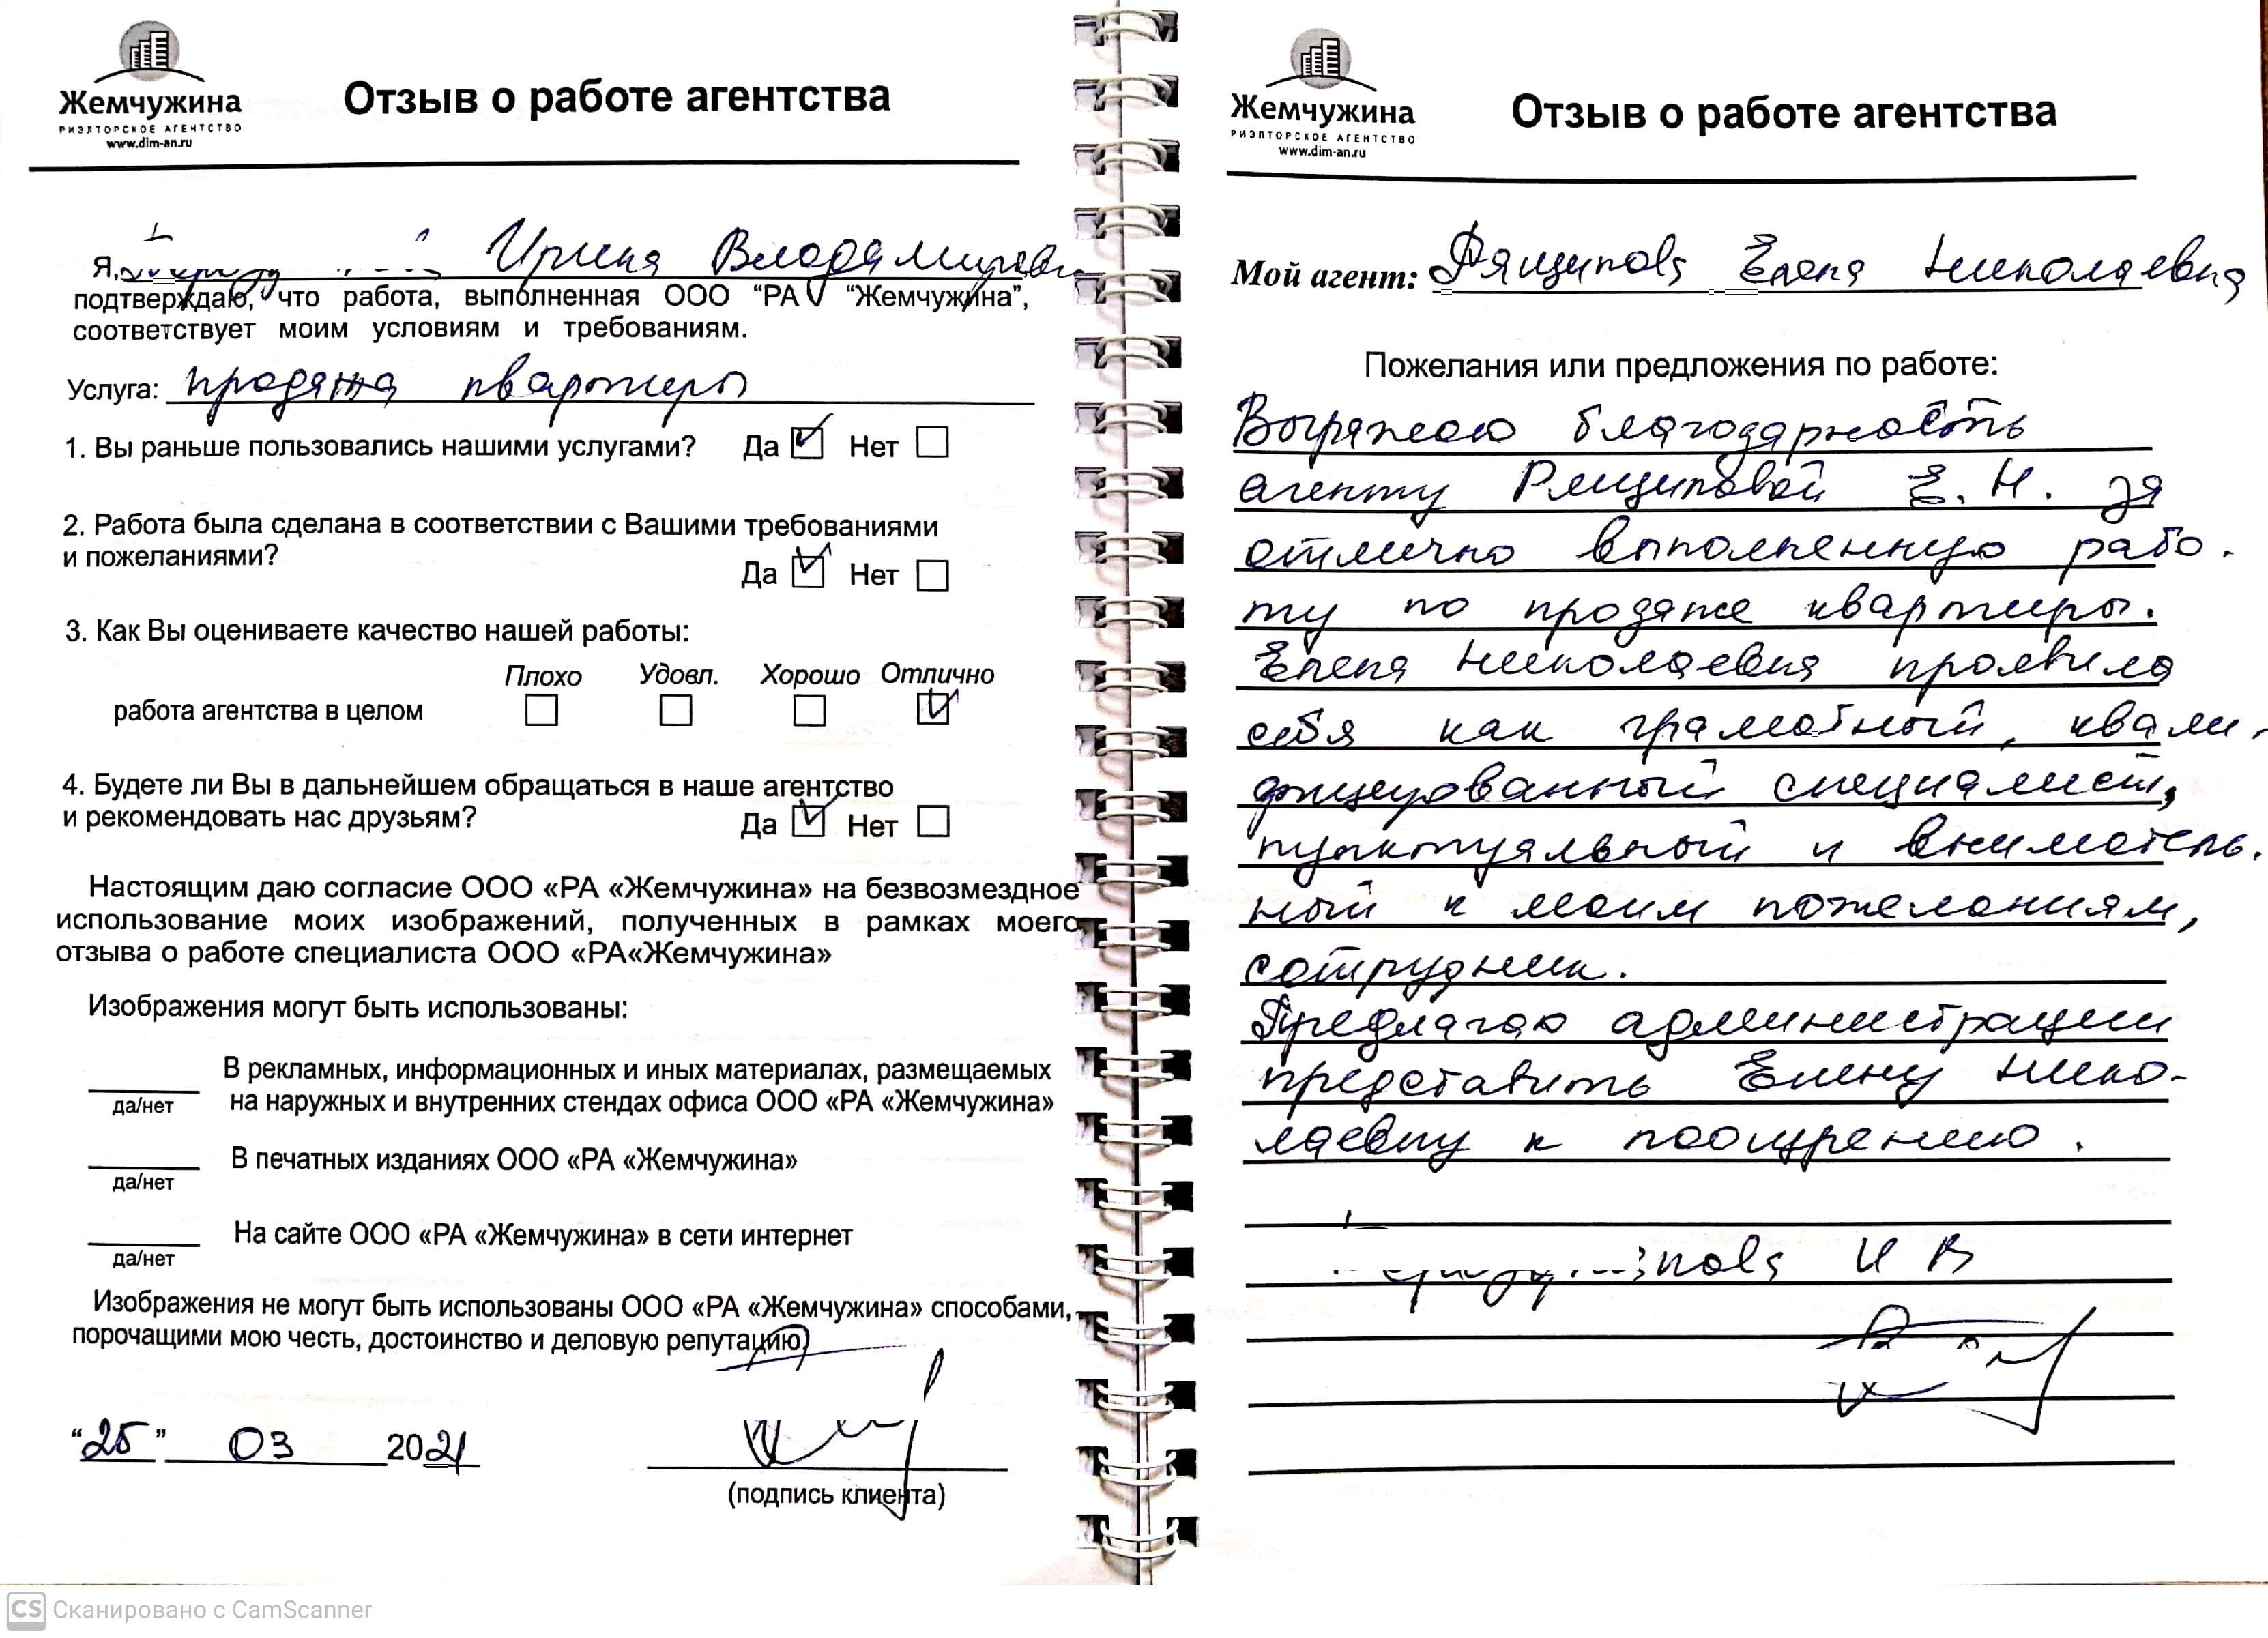 Жемчужина
РИЭЛТОРСКОЕ АГЕНТСТВО
www.dim-an.ru
Отзыв о работе агентства
Я, Ирина Владимировна
подтверждаю, что работа, выполненная ООО "РА "Жемчужина",
соответствует моим условиям и требованиям.
Услуга: продажа квартиры
1. Вы раньше пользовались нашими услугами? Да Нет
2. Работа была сделана в соответствии с Вашими требованиями
и пожеланиями?
Да Нет
3. Как Вы оцениваете качество нашей работы:
Плохо Удовл. Хорошо Отлично
работа агентства в целом
4. Будете ли Вы в дальнейшем обращаться в наше агентство
и рекомендовать нас друзьям? Да Нет
Настоящим даю согласие ООО «РА «Жемчужина» на безвозмездное
использование моих изображений, полученных в рамках моего
отзыва о работе специалиста ООО «РА«Жемчужина»
Изображения могут быть использованы:
В рекламных, информационных и иных материалах, размещаемых
да/нет на наружных и внутренних стендах офиса ООО «РА «Жемчужина»
В печатных изданиях ООО «РА «Жемчужина»
да/нет
На сайте ООО «РА «Жемчужина» в сети интернет
да/нет
Изображения не могут быть использованы ООО «РА «Жемчужина» способами,
порочащими мою честь, достоинство и деловую репутацию
"25" 03 2021
(подпись клиента)
Жемчужина
РИЭЛТОРСКОЕ АГЕНТСТВО
www.dim-an.ru
Отзыв о работе агентства
Мой агент: Елена Николаевна
Пожелания или предложения по работе:
Выражаю благодарность
агенту Рящиковой Е. Н. за
отлично выполненную рабо-
ту по продаже квартиры.
Елена Николаевна проявила
себя как грамотный, квали-
фицированный специалист,
пунктуальный и вниматель-
ный к моим пожеланиям,
сотрудник.
Предлагаю администрации
представить Елену Нико-
лаевну к поощрению.
И В
CS Сканировано с CamScanner